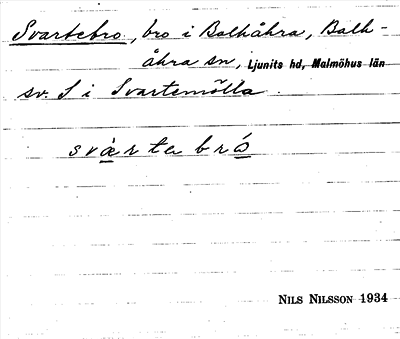 Svartebro, bro i Balkåkra, Balk-
åkra sn, Ljunits hd, Malmöhus län
sv. S i Svartemölla.
svartabró
NILS NILSSON 1934